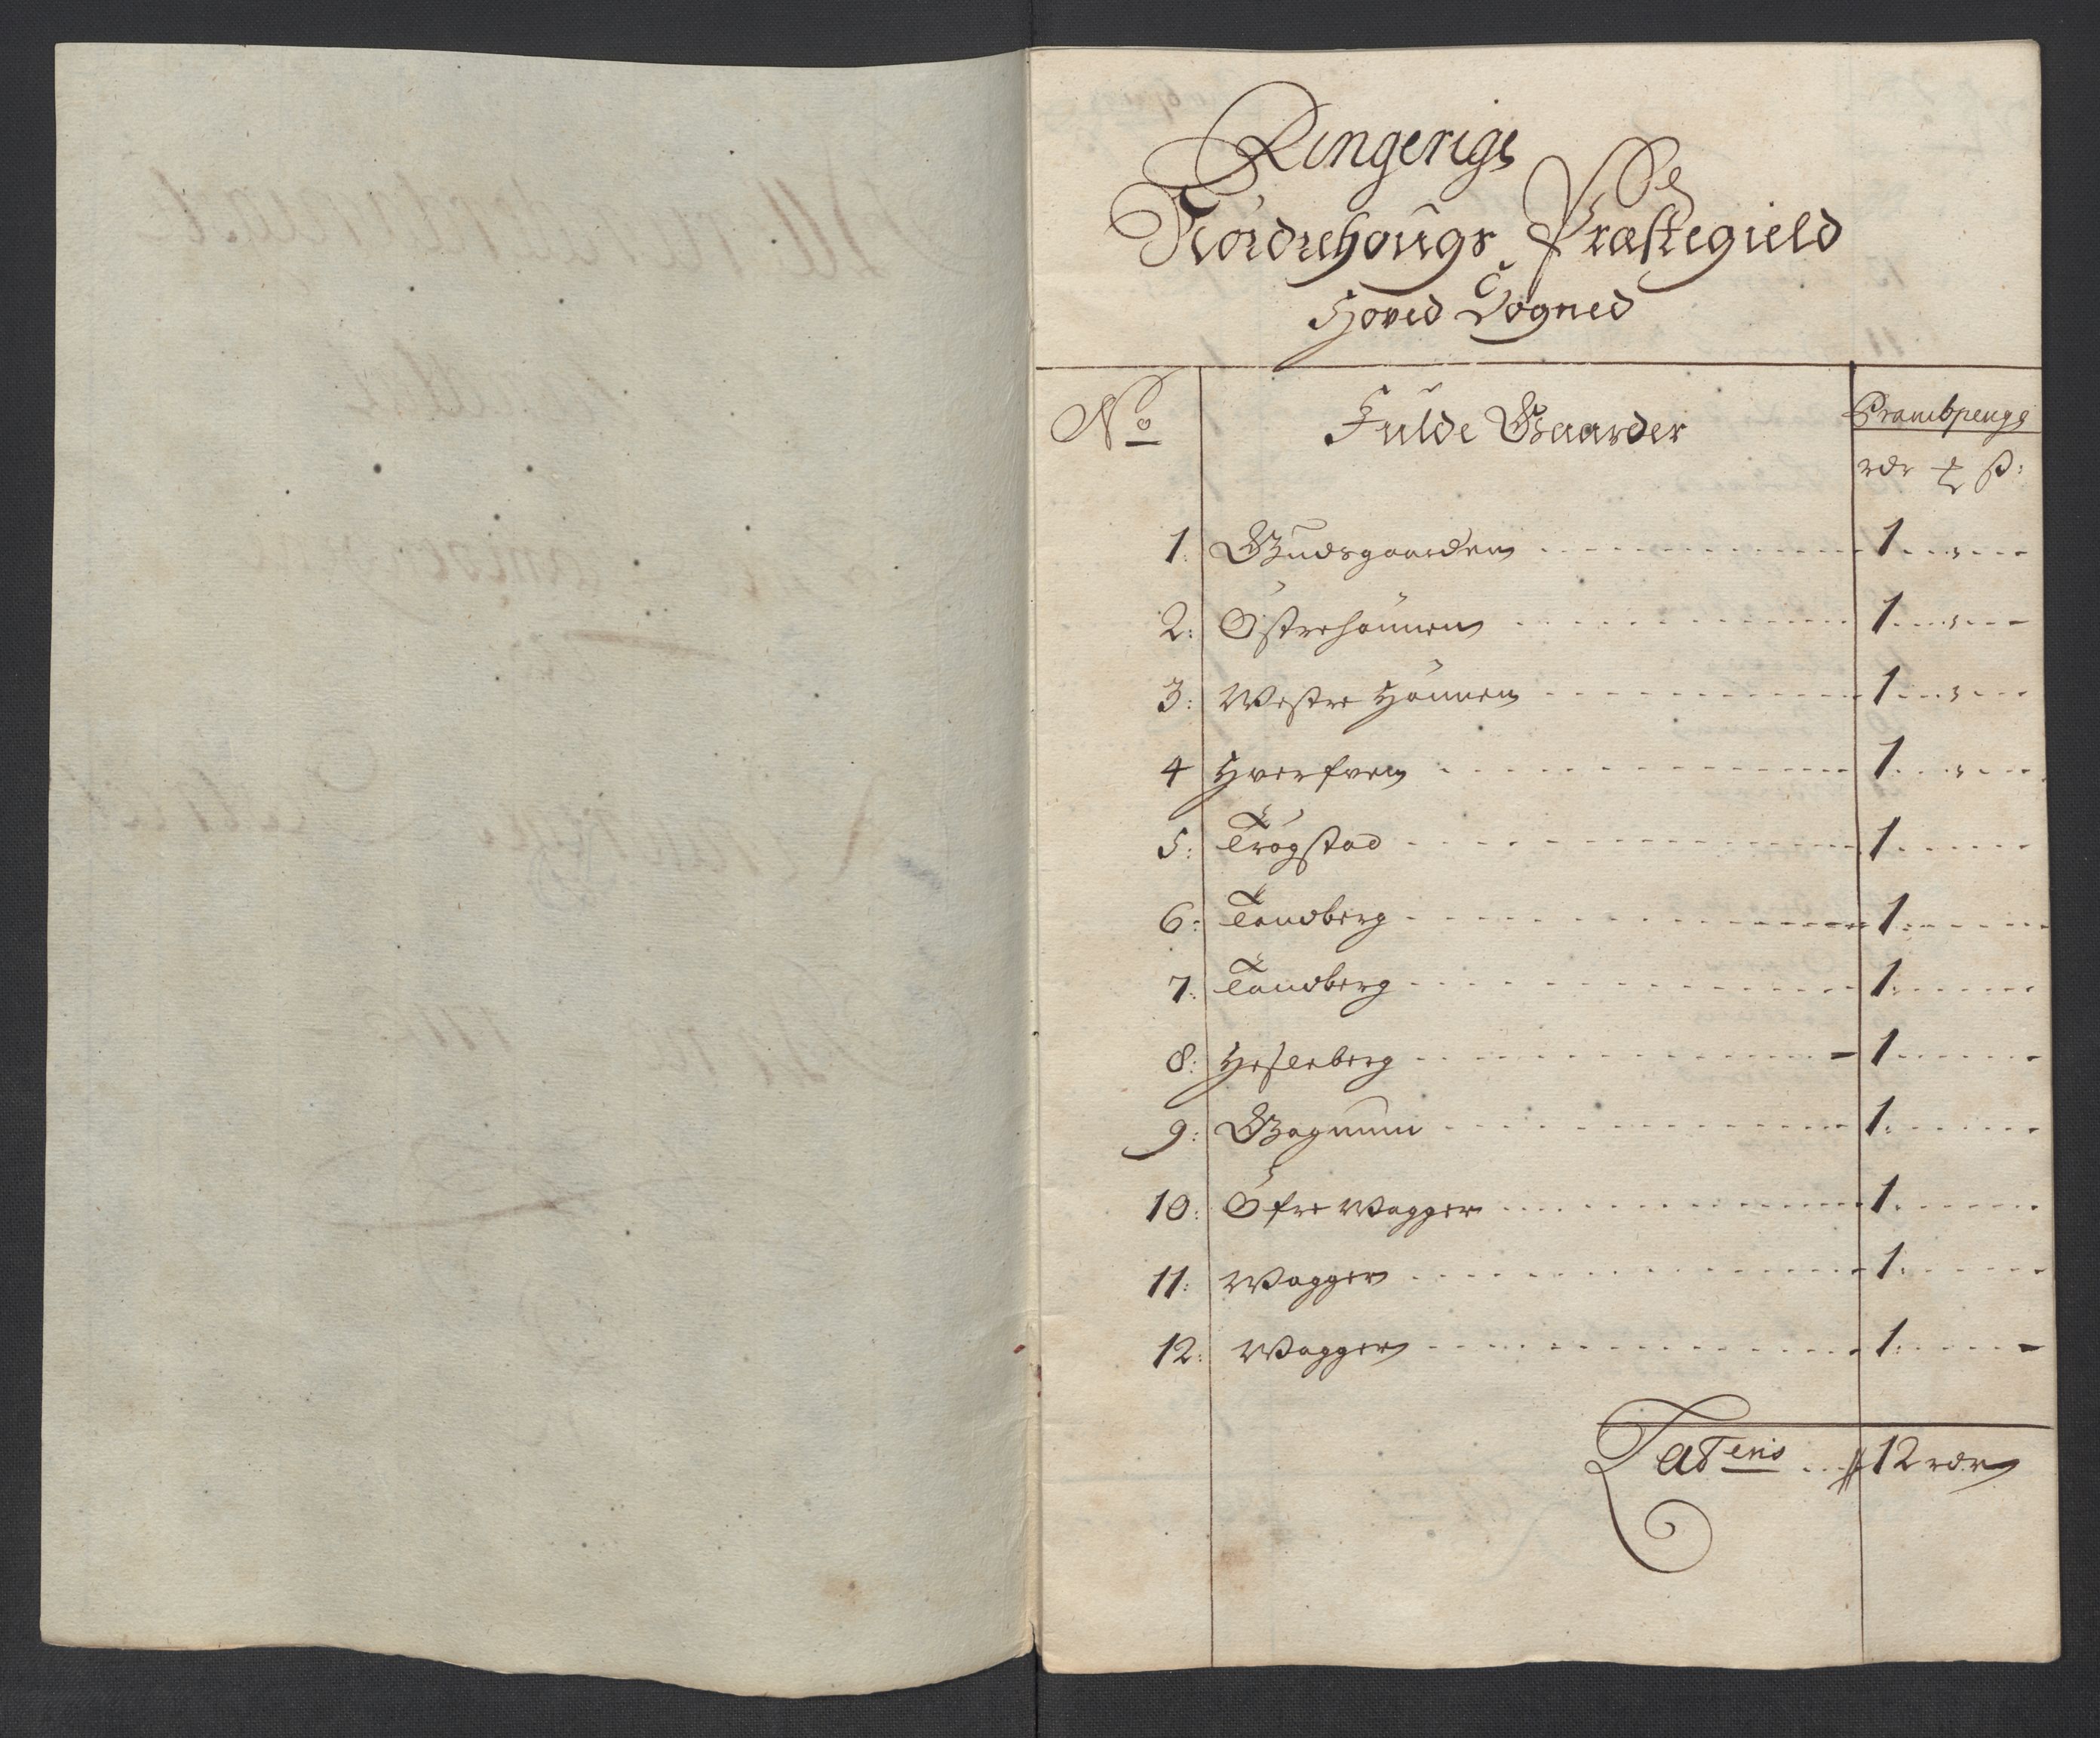 Ringerige
Nordrehougs Præstegield
Hoved Sogned
No Fulde Gaarder Prambpenge
rdr ß:
1: Gudsgaarden 1
2: Östrehönnen 1
3: Westre Hönnen 1
4 Hverfven 1
5: Trögstad 1
6: Tandberg 1
7: Tandberg 1
8: Hesleberg 1
9: Gagnum 1
10: Öfre Wagger 1
11: Wagger 1
12: Wagger 1
Lateris 12 rdr